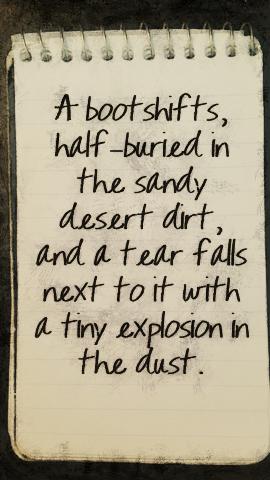 A boot shifts,
half-buried in
the sandy
desert dirt,
and a tear falls
next to it with
a tiny explosion in
the dust.